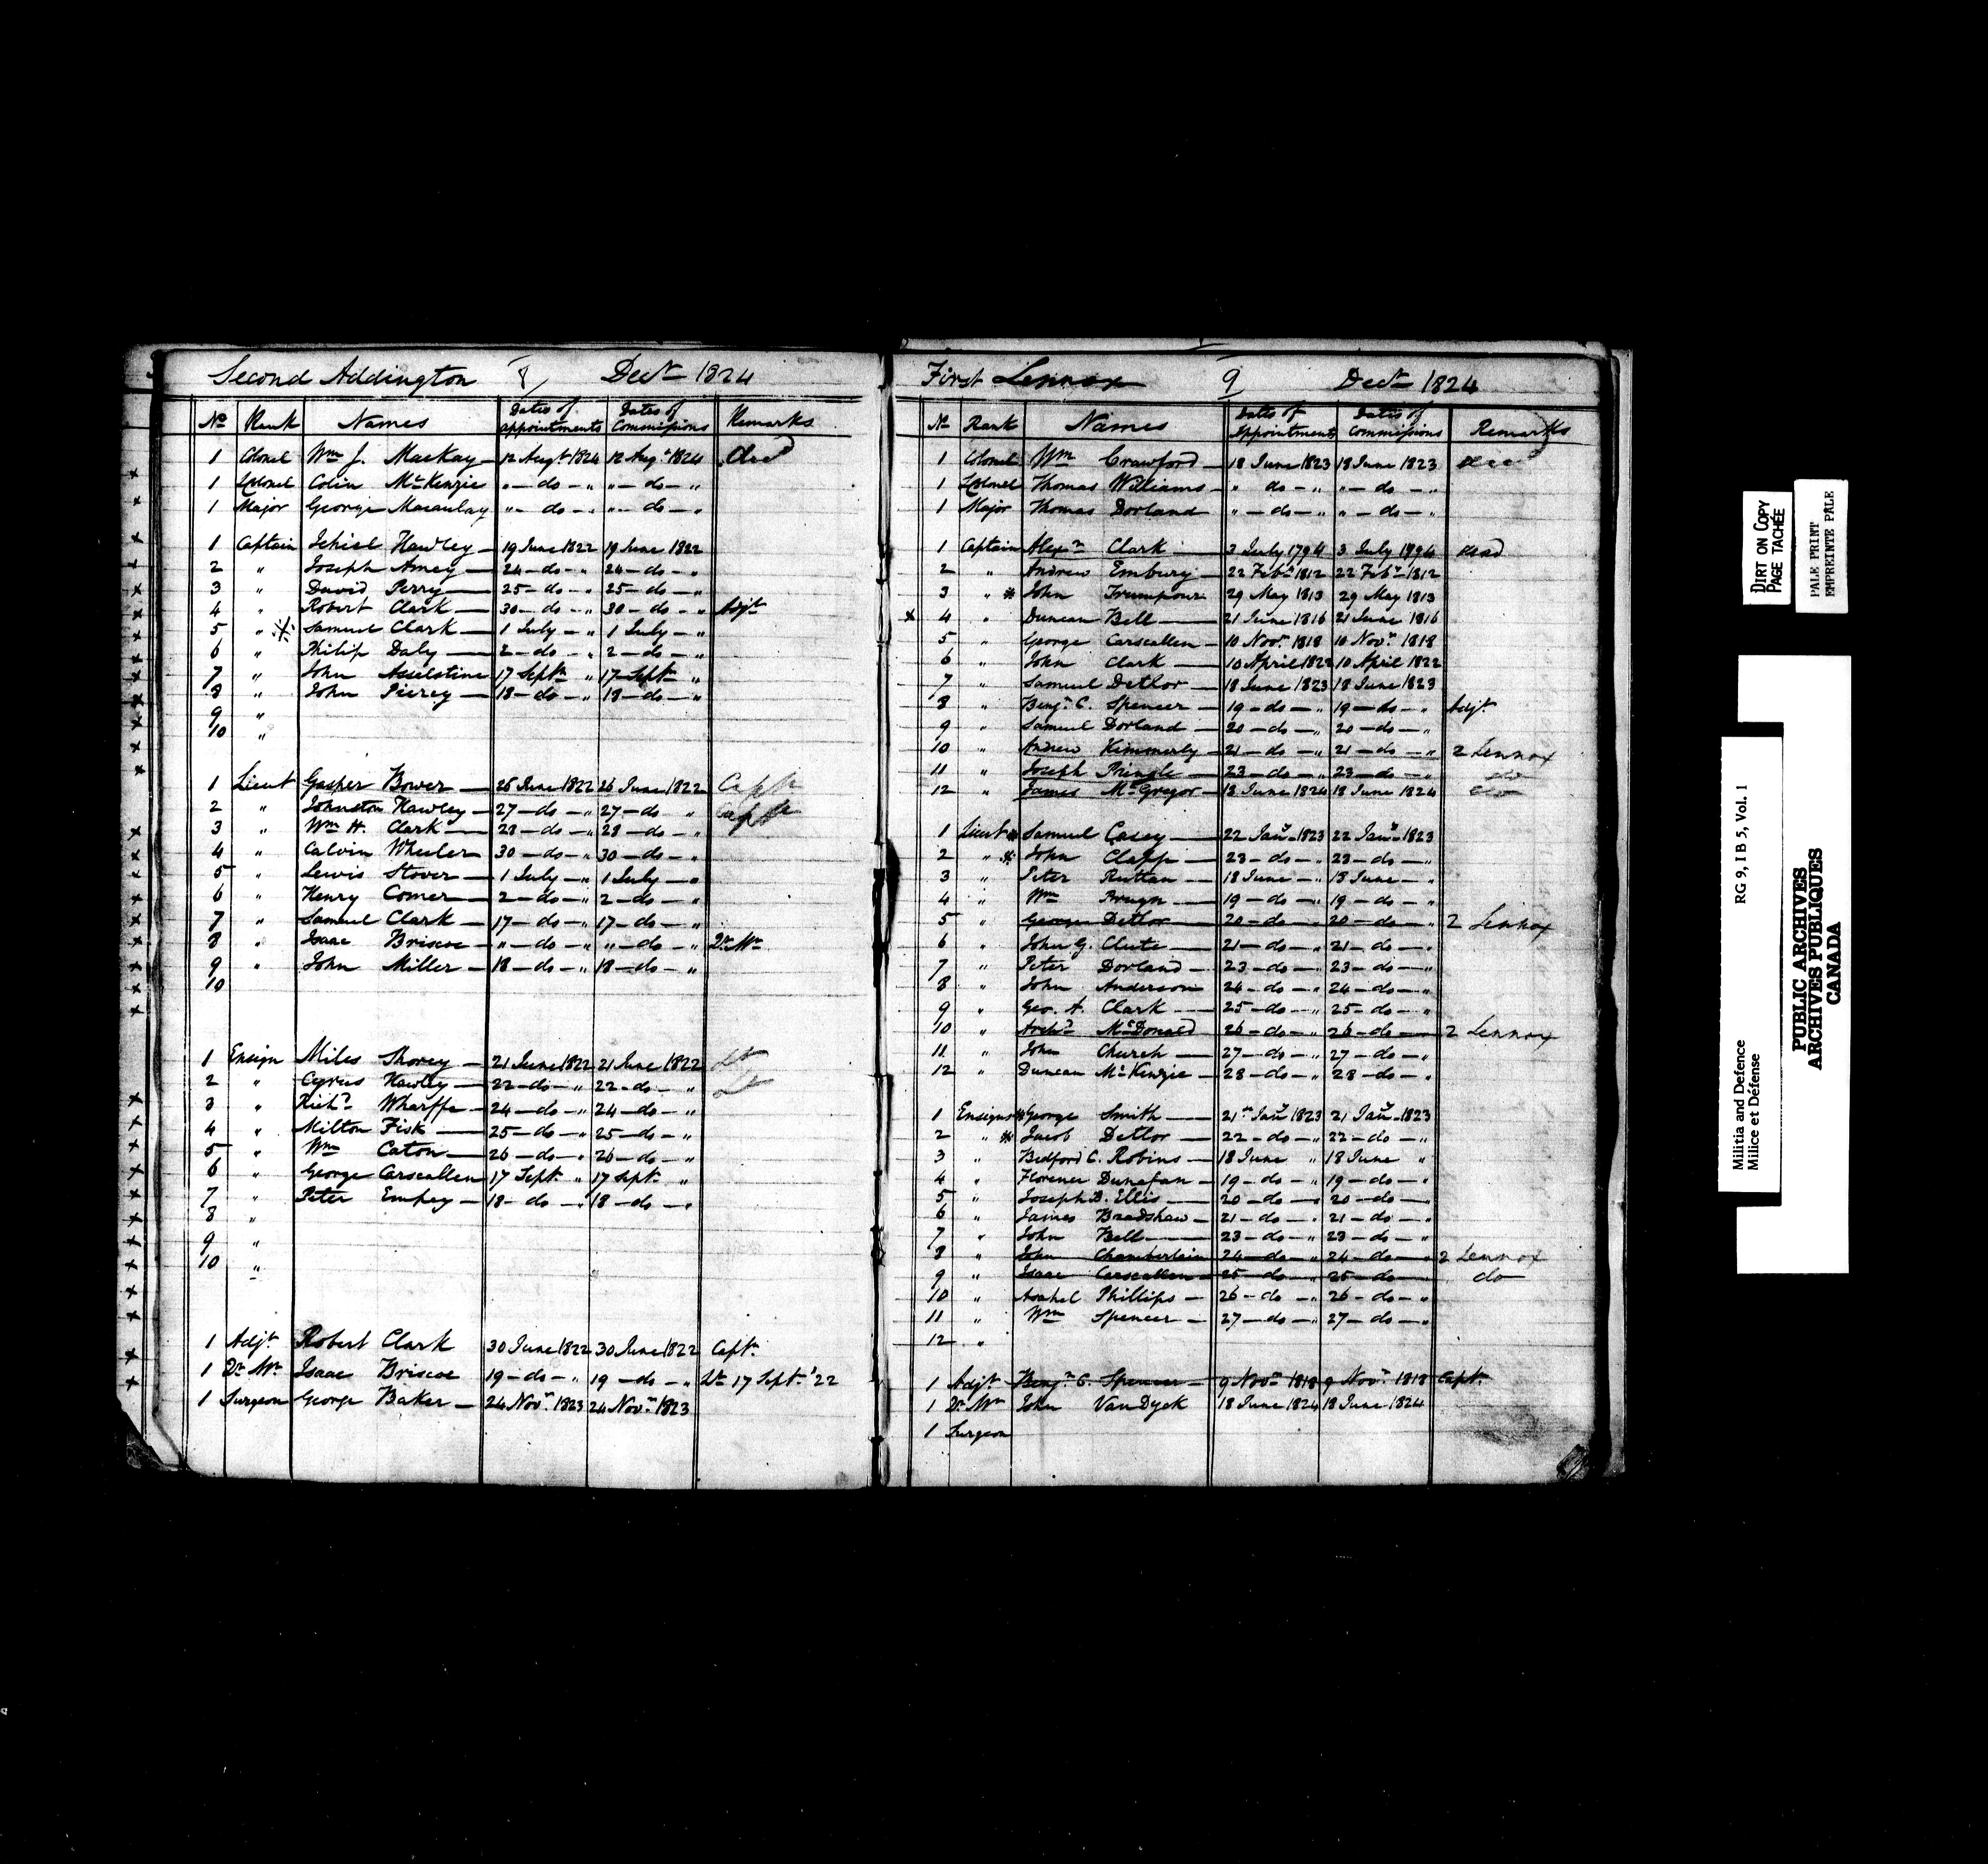 Second Addington 8 Decr 1824
No Rank Names Dates of appointments Dates of Commissions Remarks
1 Colonel Wm J. MacKay 12 Augt 1824 12 Augt 1824 dead
1 LColonel Colin McKenzie " do " " do "
1 Major George Macaulay " do " " do "
1 Captain Jehiel Hawley 19 June 1822 19 June 1822
2 " Joseph Amey 24 do " 24 do "
3 " David Perry 25 do " 25 do "
4 " Robert Clark 30 do " 30 do " Adjt
5 " Samuel Clark 1 July " 1 July "
6 " Philip Daly 2 do " 2 do "
7 " John Asselstine 17 Septr " 17 Septr "
8 " John Piercy 18 do " 18 do "
9 "
10 "
1 Lieut Gasper Bower 26 June 1822 26 June 1822 Captn
2 " Johnston Hawley 27 do " 27 do " Captn
3 " Wm H. Clark 28 do " 28 do "
4 " Calvin Wheeler 30 do " 30 do "
5 " Lewis Stover 1 July " 1 July "
6 " Henry Comer 2 do " 2 do "
7 " Samuel Clark 17 do " 17 do "
8 " Isaac Briscoe " do " " do " Qr Mr
9 " John Miller 18 do " 18 do "
10
1 Ensign Miles Shorey 21 June 1822 21 June 1822 Lt
2 " Cyrus Hawley 22 do " 22 do " Lt
3 " Richd Wharffe 24 do " 24 do "
4 " Milton Fisk 25 do " 25 do "
5 " Wm Caton 26 do " 26 do "
6 " George Carscallen 17 Septr " 17 Septr "
7 " Peter Empey 18 do " 18 do "
8 "
9 "
10 "
1 Adjt Robert Clark 30 June 1822 30 June 1822 Captn
1 Qr Mr Isaac Briscoe 19 do " 19 do " Lt 17 Septr '22
1 Surgeon George Baker 24 Novr 1823 24 Novr 1823
First Lennox 9 Decr 1824
No Rank Names Dates of Appointments Dates of Commissions Remarks
1 Colonel Wm Crawford 18 June 1823 18 June 1823 dead
1 LColonel Thomas Williams " do " " do "
1 Major Thomas Dorland " do " " do "
1 Captain Alexr Clark 3 July 1794 3 July 1794 dead
2 " Andrew Embury 22 Feby 1812 22 Feby 1812
3 " John Trumpour 29 May 1813 29 May 1813
4 " Duncan Bell 21 June 1816 21 June 1816
5 " George Carscallen 10 Novr 1818 10 Novr 1818
6 " John Clark 10 April 1822 10 April 1822
7 " Samuel Detlor 18 June 1823 18 June 1823
8 " Benjn C. Spencer 19 do " 19 do " Adjt
9 " Samuel Dorland 20 do " 20 do "
10 " Andrew Kimmerly 21 do " 21 do " 2 Lennox
11 " Joseph Pringle 23 do " 23 do " do
12 " James McGregor 18 June 1824 18 June 1824 do
1 Lieut Samuel Casey 22 Jany 1823 22 Jany 1823
2 " John Clapp 23 do " 23 do "
3 " Peter Ruttan 18 June " 18 June "
4 " Wm Pruyn 19 do " 19 do "
5 " George Detlor 20 do " 20 do " 2 Lennox
6 " John G. Clute 21 do " 21 do "
7 " Peter Dorland 23 do " 23 do "
8 " John Anderson 24 do " 24 do "
9 " Geo. A. Clark 25 do " 25 do "
10 " Archd McDonald 26 do " 26 do 2 Lennox
11 " John Church 27 do " 27 do "
12 " Duncan McKenzie 28 do " 28 do "
1 Ensigns George Smith 21 Jany 1823 21 Jany 1823
2 " Jacob Detlor 22 do " 22 do "
3 " Bedford C. Robins 18 June " 18 June "
4 " Dunafan 19 do " 19 do "
5 " Joseph B. Ellis 20 do " 20 do "
6 " James Bradshaw 21 do " 21 do "
7 " John Bell 23 do " 23 do "
8 " John Chamberlain 24 do " 24 do " 2 Lennox
9 " Isaac Carscallen 25 do 25 do do
10 " Asahel Phillips 26 do " 26 do "
11 " Wm Spencer 27 do " 27 do "
12 "
1 Adjt Benjn C. Spencer 9 Novr 1818 9 Novr 1818 Captn
1 Qr Mr John VanDyck 18 June 1824 18 June 1824
1 Surgeon
DIRT ON COPY
PAGE TACHÉE
PALE PRINT
EMPREINTE PÂLE
Militia and Defence RG 9, I B 5, Vol. 1
Milice et Défense
PUBLIC ARCHIVES
ARCHIVES PUBLIQUES
CANADA